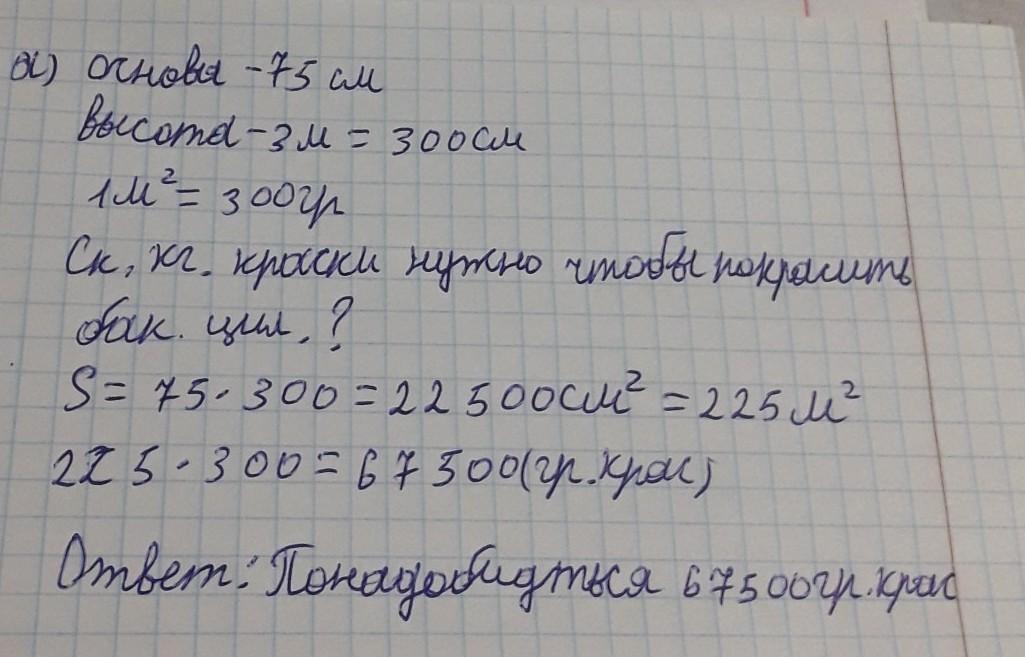 а) основа - 75 см
высота - 3 м = 300 см
1 м² = 300 гр
Ск. кг. краски нужно чтобы покрасить
бак. цил.?
S = 75 · 300 = 22 500 см² = 225 м²
225 · 300 = 67 500 (гр. крас)
Ответ: Понадобидться 67500 гр. крас